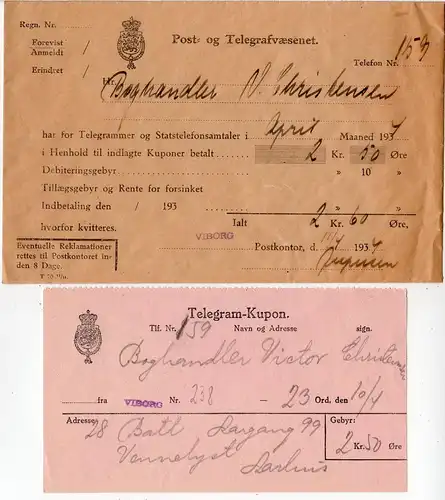 Regn. Nr.
Forevist
Anmeldt /
Erindret /
Post- og Telegrafvæsenet.
Telefon Nr. 159
Hr.
Boghandler V. Christensen
har for Telegrammer og Statstelefonsamtaler i April Maaned 1937
i Henhold til indlagte Kuponer betalt 2 Kr. 50 Øre
Debiteringsgebyr » 10 »
Tillægsgebyr og Rente for forsinket
Indbetaling den / 193 » »
Ialt 2 Kr. 60 Øre,
hvorfor kvitteres.
VIBORG
Postkontor, d. 1937
Eventuelle Reklamationer
rettes til Postkontoret in-
den 8 Dage.
Telegram-Kupon.
Tlf. Nr. 159 Navn og Adresse sign.
Boghandler Victor Christensen
fra VIBORG Nr. 238 — 23 Ord. den 10/4
Adresse: 28 Batl Aargang 99
Vennelyst Aarhus
Gebyr:
2 Kr. 50 Øre